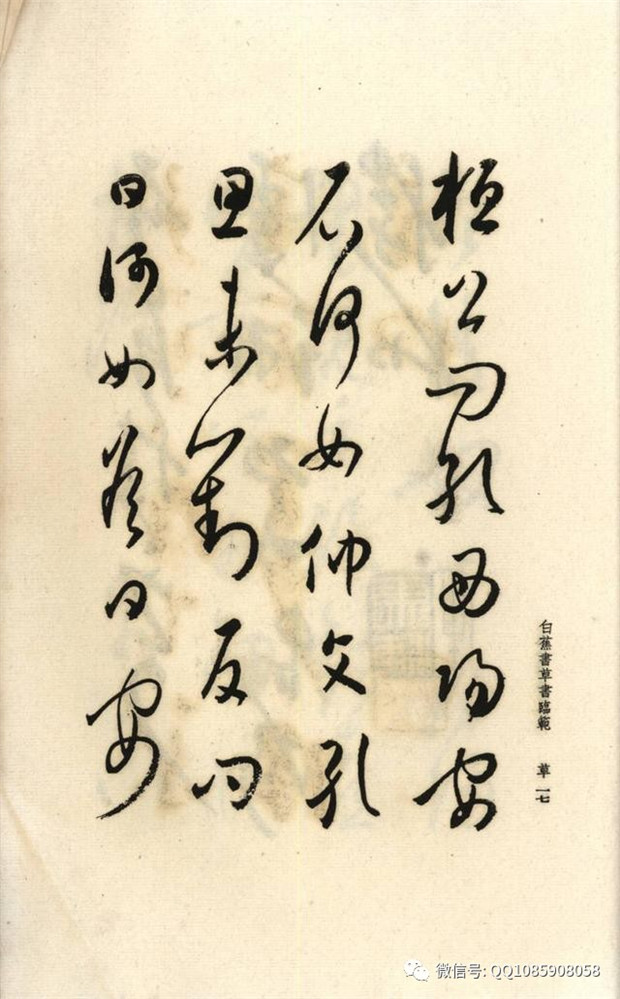 桓公問孔西陽安
石何如仲文孔
思未對反問
曰何如答曰安
白蕉書草書臨範 草一七
微信号: QQ1085908058